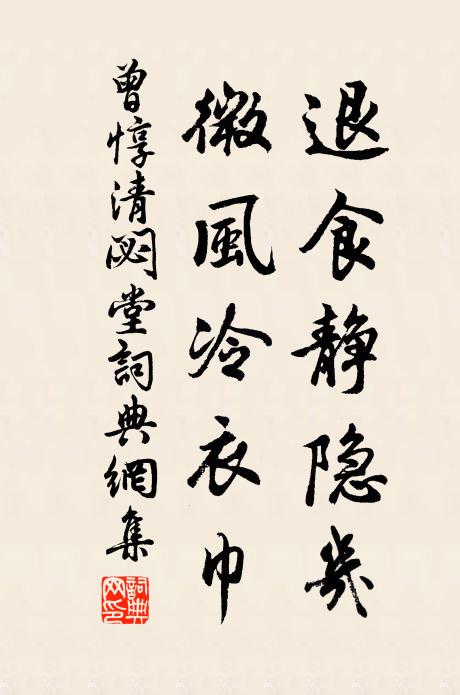 退食静隐几
微風冷衣巾
曾惇清閟堂詞典網集
詞典網印